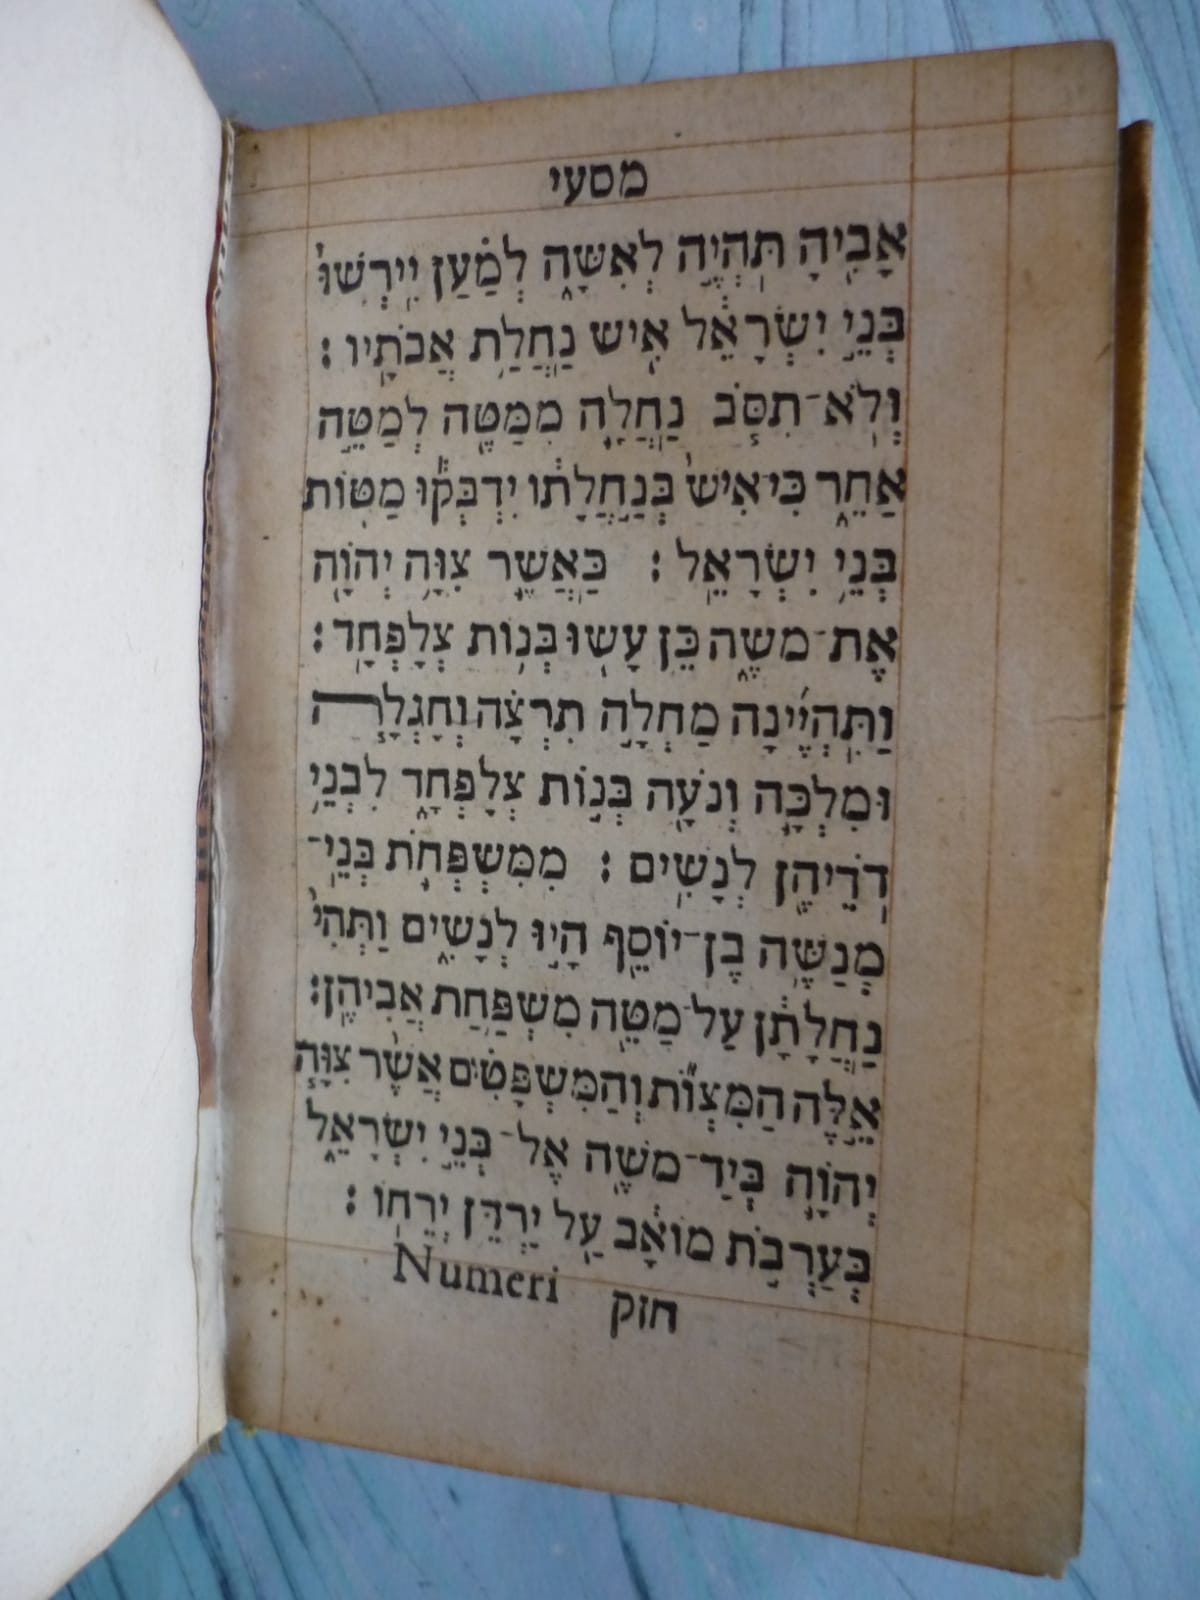 מסעי
אָבִיהָ תִּהְיֶה לְאִשָּׁה לְמַעַן יִירְשׁוּ
בְּנֵי יִשְׂרָאֵל אִישׁ נַחֲלַת אֲבֹתָיו :
וְלֹא־תִסֹּב נַחֲלָה מִמַּטֶּה לְמַטֶּה
אַחֵר כִּי־אִישׁ בְּנַחֲלָתוֹ יִדְבְּקוּ מַטּוֹת
בְּנֵי יִשְׂרָאֵל : כַּאֲשֶׁר צִוָּה יְהוָֹה
אֶת־משֶׁה כֵּן עָשׂוּ בְּנוֹת צְלָפְחָד :
וַתִּהְיֶינָה מַחְלָה תִרְצָה וְחָגְלָה
וּמִלְכָּה וְנֹעָה בְּנוֹת צְלָפְחָד לִבְנֵי
דֹדֵיהֶן לְנָשִׁים : מִמִּשְׁפְּחֹת בְּנֵי־
מְנַשֶּׁה בֶן־יוֹסֵף הָיוּ לְנָשִׁים וַתְּהִי
נַחֲלָתָן עַל־מַטֵּה מִשְׁפַּחַת אֲבִיהֶן :
אֵלֶּה הַמִּצְוֹת וְהַמִּשְׁפָּטִים אֲשֶׁר צִוָּה
יְהוָֹה בְּיַד־משֶׁה אֶל־בְּנֵי יִשְׂרָאֵל
בְּעַרְבֹת מוֹאָב עַל יַרְדֵּן יְרֵחוֹ :
חזק Numeri